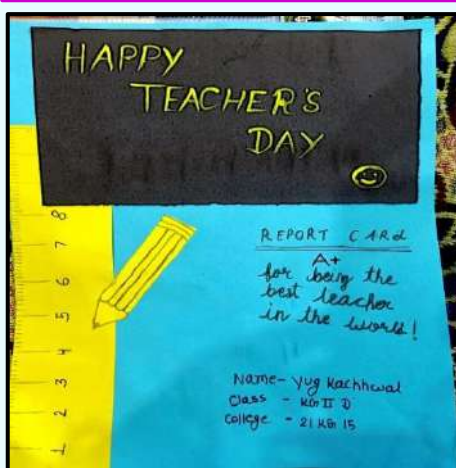 HAPPY
TEACHER'S
DAY
8
7
6
5
4
3
2
1
REPORT CARd
A+
for being the
best teacher
in the world!
Name- Yug Kachhwal
Class - KG II D
College - 21 KG 15